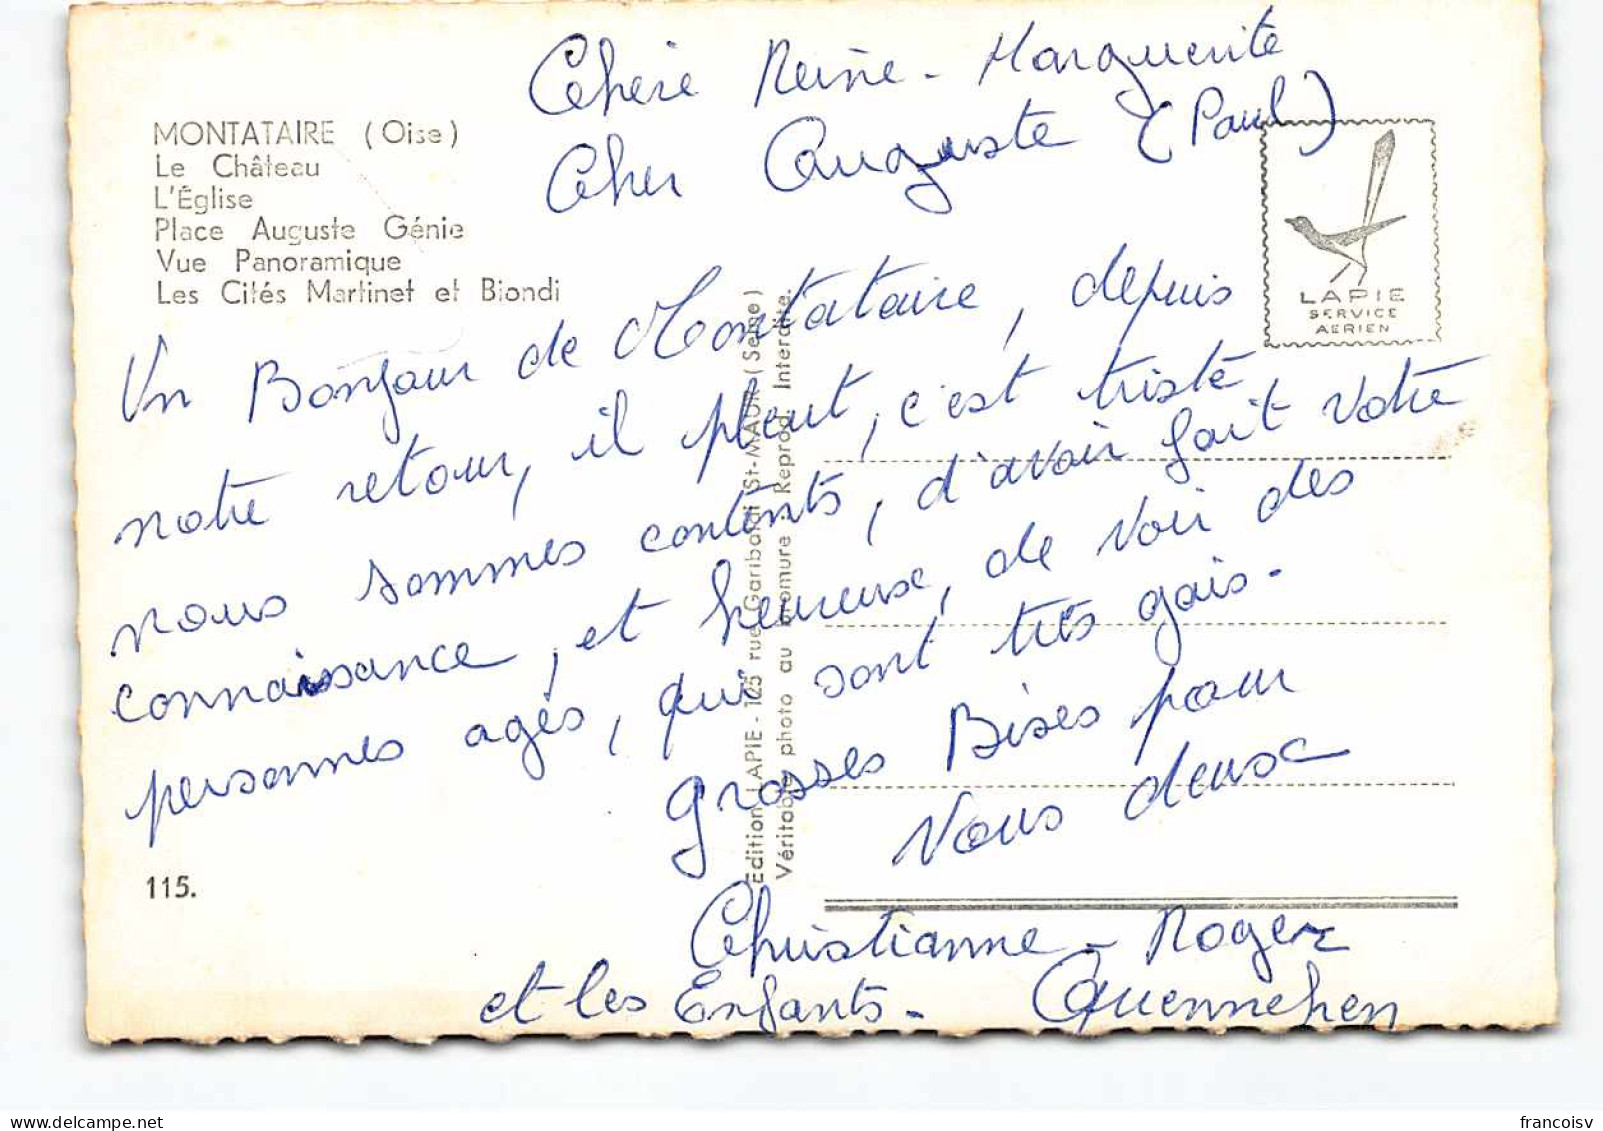 Chère Reine-Marguerite
Cher Auguste (Paul)
MONTATAIRE (Oise)
Le Château
L'Église
Place Auguste Génie
Vue Panoramique
Les Cités Martinet et Biondi
LAPIE
SERVICE
AERIEN
Un Bonjour de Montataire, depuis
notre retour, il pleut, c'est triste
nous sommes contents, d'avoir fait votre
connaissance, et heureuse, de voir des
personnes agés, qui sont très gais.
grosses Bises pour
vous deux
Edition LAPIE - 125 rue Garibaldi St-MAUR (Seine)
Véritable photo au bromure - Reprod. Interdite.
115.
Christianne - Roger
et les Enfants - Quennehen
www.delcampe.net
francoisv